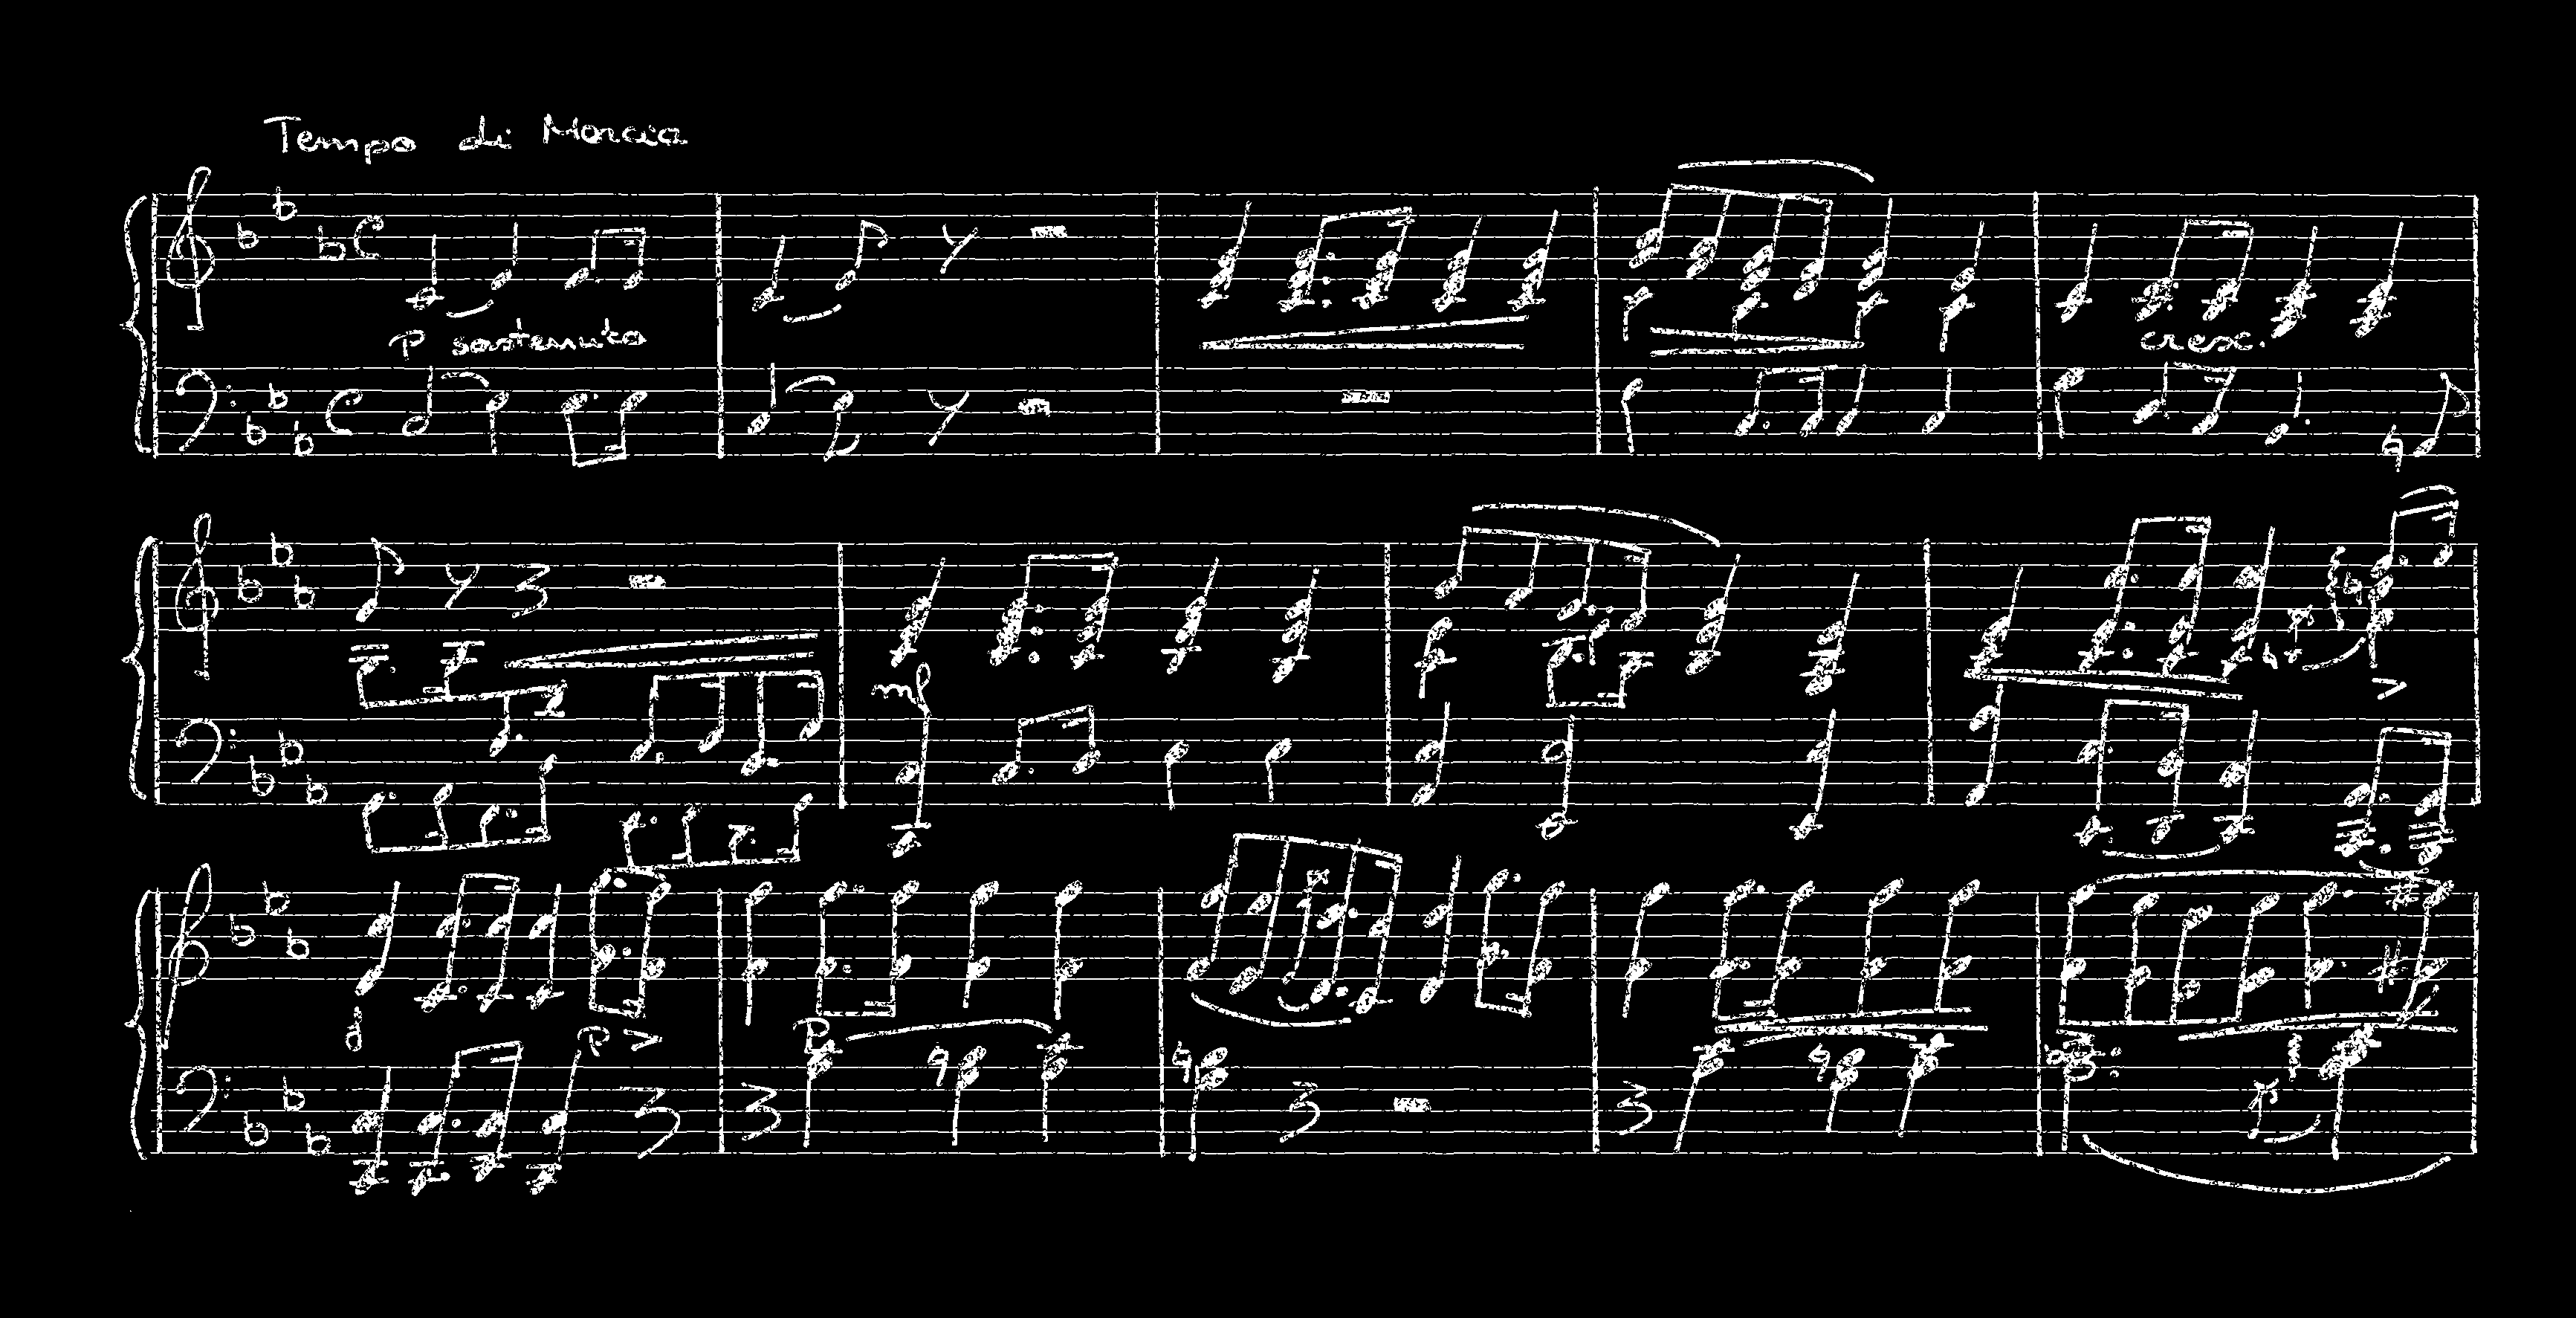 Tempo di Marcia
P sostenuto
cresc.
mf
P
P